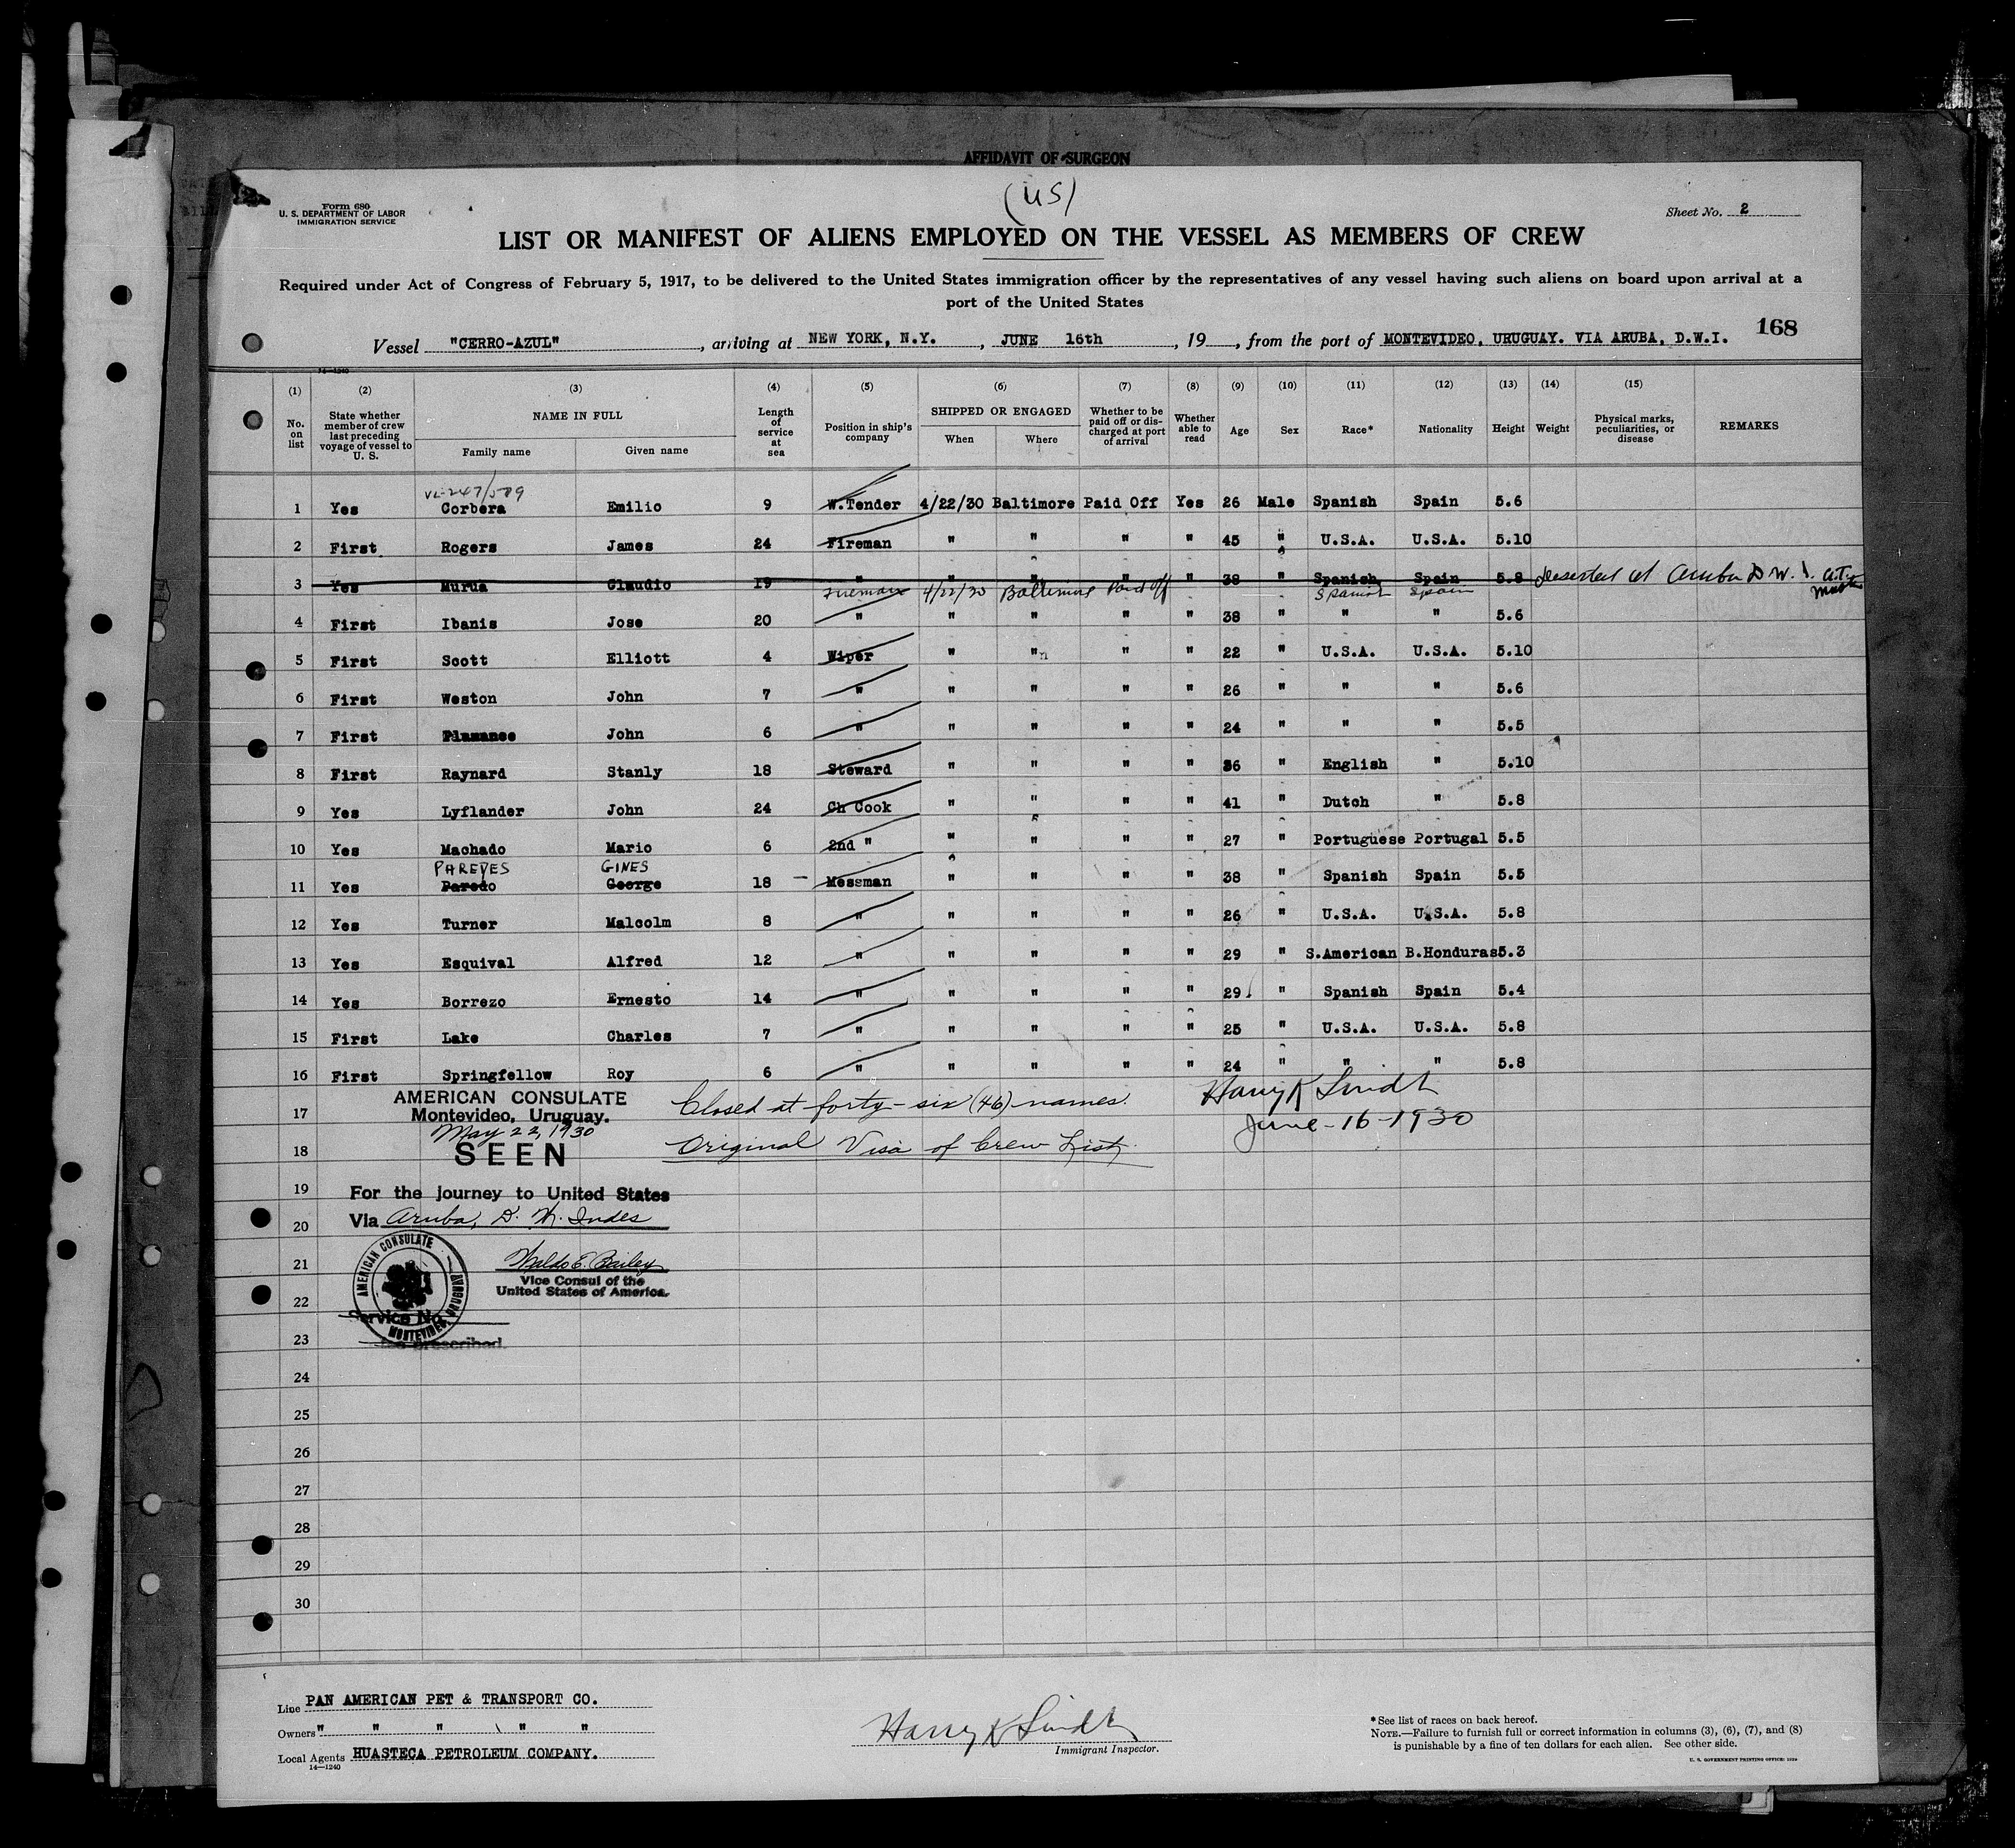 AFFIDAVIT OF SURGEON
(US)
Form 680
U. S. DEPARTMENT OF LABOR
IMMIGRATION SERVICE
Sheet No. 2
LIST OR MANIFEST OF ALIENS EMPLOYED ON THE VESSEL AS MEMBERS OF CREW
Required under Act of Congress of February 5, 1917, to be delivered to the United States immigration officer by the representatives of any vessel having such aliens on board upon arrival at a
port of the United States
168
Vessel "CERRO-AZUL", arriving at NEW YORK, N.Y., JUNE 16th, 19 , from the port of MONTEVIDEO, URUGUAY. VIA ARUBA, D.W.I.
14-1240
(1) (2) (3) (4) (5) (6) (7) (8) (9) (10) (11) (12) (13) (14) (15)
No. on list | State whether member of crew last preceding voyage of vessel to U. S. | NAME IN FULL | Family name | Given name | Length of service at sea | Position in ship's company | SHIPPED OR ENGAGED | When | Where | Whether to be paid off or discharged at port of arrival | Whether able to read | Age | Sex | Race* | Nationality | Height | Weight | Physical marks, peculiarities, or disease | REMARKS
1 Yes Corbera Emilio 9 W.Tender 4/22/30 Baltimore Paid Off Yes 26 Male Spanish Spain 5.6
2 First Rogers James 24 Fireman " " " " 45 " U.S.A. U.S.A. 5.10
3 Yes Murua Claudio 19 " " " " " 38 " Spanish Spain 5.8 Deserted at Aruba D.W.I.
Fireman 4/22/30 Baltimore Paid Off Spanish Spain
4 First Ibanis Jose 20 " " " " " 38 " " " 5.6
5 First Scott Elliott 4 Wiper " " " " 22 " U.S.A. U.S.A. 5.10
6 First Weston John 7 " " " " " 26 " " " 5.6
7 First John 6 " " " " " 24 " " " 5.5
8 First Raynard Stanly 18 Steward " " " " 36 " English " 5.10
9 Yes Lyflander John 24 Ch Cook " " " " 41 " Dutch " 5.8
10 Yes Machado Mario 6 2nd " " " " " 27 " Portuguese Portugal 5.5
PAREDES GINES
11 Yes Paredo George 18 Messman " " " " 38 " Spanish Spain 5.5
12 Yes Turner Malcolm 8 " " " " " 26 " U.S.A. U.S.A. 5.8
13 Yes Esquival Alfred 12 " " " " " 29 " S.American B.Honduras 5.3
14 Yes Borrezo Ernesto 14 " " " " " 29 " Spanish Spain 5.4
15 First Lake Charles 7 " " " " " 25 " U.S.A. U.S.A. 5.8
16 First Springfellow Roy 6 " " " " " 24 " " " 5.8
17 AMERICAN CONSULATE Closed at forty-six (46) names. Harry K Lindt
Montevideo, Uruguay.
May 22, 1930 June-16-1930
18 SEEN Original Visa of Crew List.
19 For the journey to United States
20 Via Aruba, D. W. Indes
21 Waldo E. Bailey
Vice Consul of the
United States of America.
AMERICAN CONSULATE
MONTEVIDEO, URUGUAY
22 Service No.
23 prescribed.
24
25
26
27
28
29
30
Line PAN AMERICAN PET & TRANSPORT CO.
Owners " " " " "
Local Agents HUASTECA PETROLEUM COMPANY.
14—1240
Harry K Lindt
Immigrant Inspector.
*See list of races on back hereof.
NOTE.—Failure to furnish full or correct information in columns (3), (6), (7), and (8)
is punishable by a fine of ten dollars for each alien. See other side.
U. S. GOVERNMENT PRINTING OFFICE: 1929